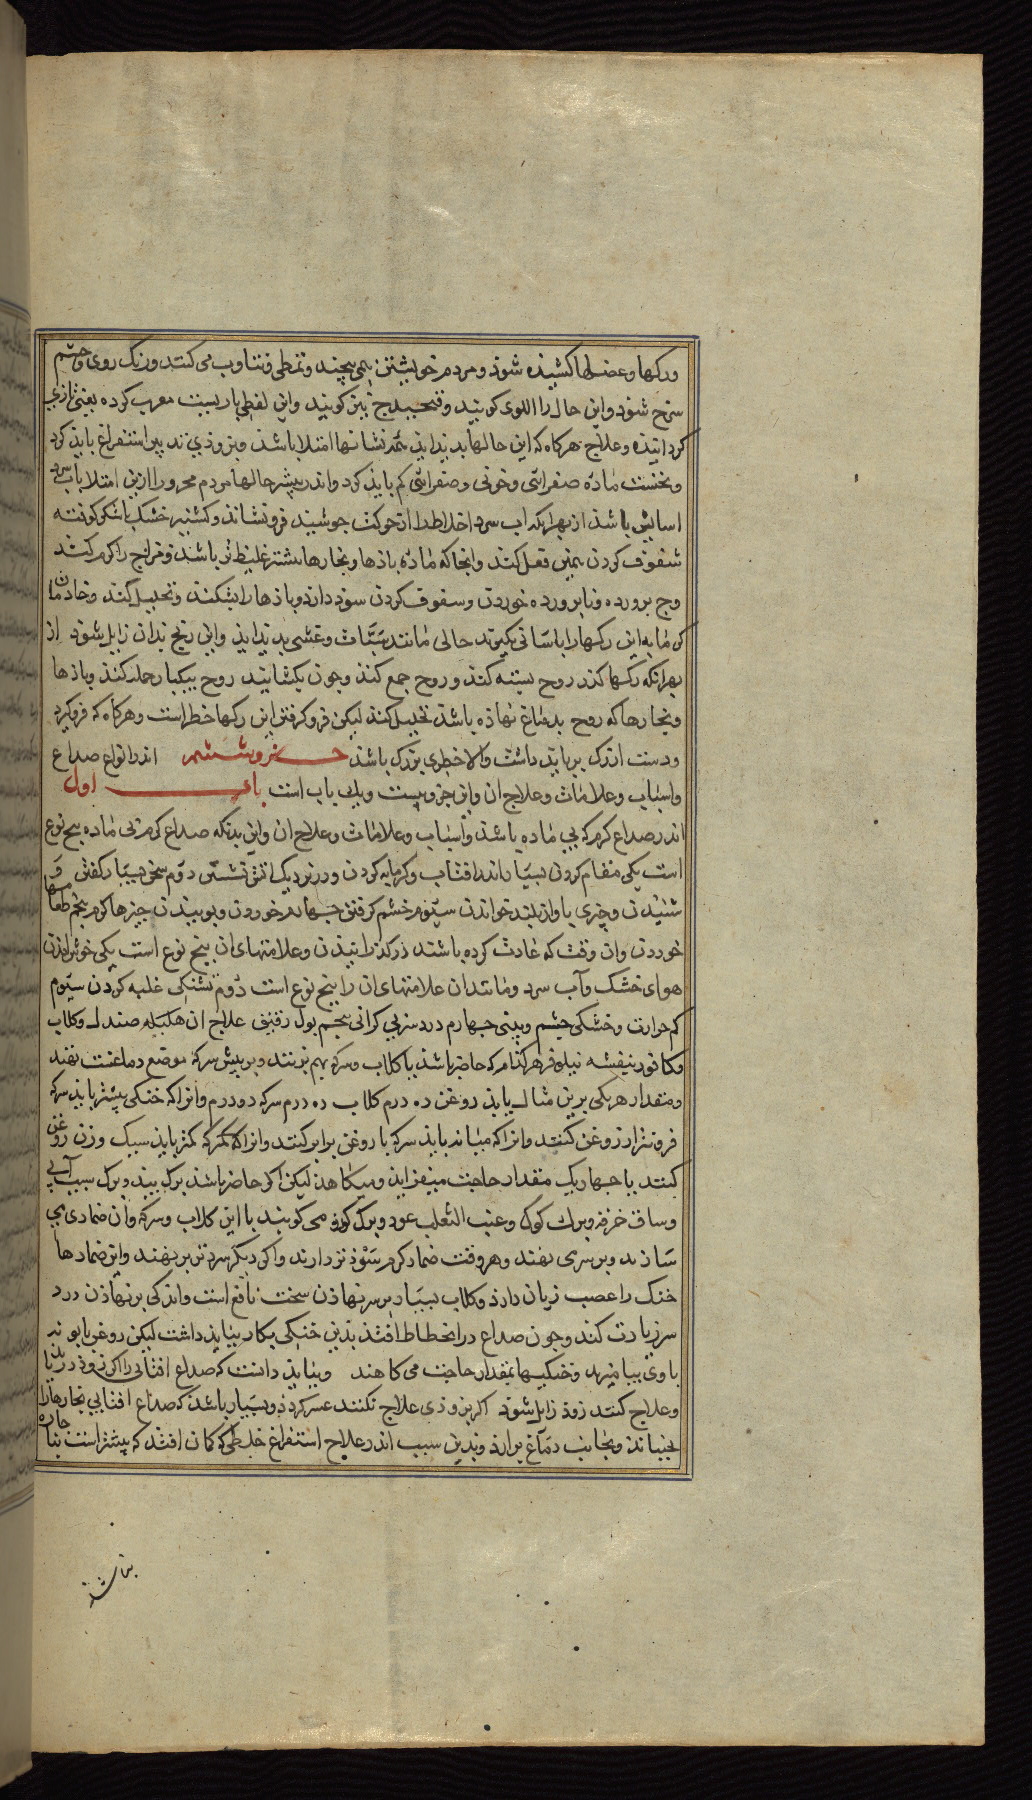 ورکها وعضلها کشیذه شوذ و مردم خویشتن همی بیچند و تمطی و تثاوب می کنند ورنک روی و چشم
سرخ شوذ و این حال را اللوی کویند و فنجیدج نیز کویند و این لفظی پارسیست معرب کرده یعنی از
کردانیذه و علاج هرکاه که این حالها بدیذ ایذ نشانها امتلا باشذ و بزوذی تدبیر استفراغ بایذ کرد
و نخست ماده صفرائی و خونی و صفرائی کم بایذ کرد و اندر بیشتر حالها مردم محرور را ازین امتلا باب سرد
اسایش باشذ از بهر انکه اب سرد اخلاط را از حرکت جوشیذن فرو نشانذ و کشنیز خشک با شکر کوفته
سفوف کردن همین فعل کند و انجا که ماده باذها و بخارها بیشتر غلیظ تر باشذ و مزاج را کرم کنند
وج برورده و نابرورده خوردن و سفوف کردن سوذ دارذ و باذها را بشکند و تحلیل کند و خاذمان
کرمابه این رکها را باسانی بکیرند حالی مانند سبات و غشی بدیذ ایذ و این رنج بدان زایل شوذ از
بهر انکه رکها کذر روح بسته کند و روح جمع کند و چون بکشایند روح بیکبار حمله کند و باذها
و بخارها که روح بدماغ نهاذه باشذ تحلیل کند لیکن فرو کرفتن این رکها خطر است و هرکاه که فروکیرد
و دست ازو بربایذ داشت و الا خطری بزرک باشذ جزو ششم اندر انواع صداع
و اسباب و علامات و علاج ان و این جزو بیست و یک باب است باب اول
اندر صداع کرم که بی ماده باشذ و اسباب و علامات و علاج ان و این بدانکه صداع کرم بی ماده پنج نوع
است یکی مقام کردن بسیار اندر افتاب و کرمابه کردن و نزدیک اتش نشستن دوم سخن بسیار کفتن و
شنیذن و چیزی باواز بلند خواندن سیوم خشم کرفتن چهارم خوردن و بوییذن چیزها کرم پنجم طعامها
خوردن و ان وقت که عادت کرده باشند درکذرانیذن و علامتهای ان پنج نوع است یکی خوش امذن
هوای خشک و آب سرد و مانند ان علامتهای ان را پنج نوع است دوم تشنکی غلبه کردن سیوم
کم حرارت و خشکی چشم و بینی چهارم درد سر بی کرانی پنجم بول رقیق علاج ان صندل و کلاب
و کافور بنفشه نیلوفر هرکذام که حاضر باشذ با کلاب و سرکه بهم بزنند و بر پیش سر که موضع دماغست نهند
و مقدار هر یکی برین مثال بایذ روغن ده درم کلاب ده درم سرکه دو درم و انرا که خنکی بیشتر بایذ سرکه
فزونتر از روغن کنند و انرا که میانه بایذ سرکه با روغن برابر کنند و انرا که کمتر بایذ سیک وزن روغن
کنند یا چهاریک مقدار حاجت میفزاینذ و میکاهنذ لیکن اکر حاضر باشذ برک بید و برک سیب آبی
و ساق خرفه و برک کوک و عنب الثعلب و برک می کوبند با این کلاب و سرکه و ان ضمادی می
سازند و بر سر می نهند و هر وقت ضماد کرم شوذ بردارند و یکی دیکر سرد تر بر نهند و این ضمادها
خنک را عصب زیان دارذ و کلاب بسیار بر سر نهاذن سخت نافع است و اندکی بر نهاذن درد
سر زیادت کند و چون صداع در انحطاط افتذ بذین خنکی بکار نبایذ داشت لیکن روغن بابونه
با وی بیامیزند و خنکیها بمقدار حاجت می کاهند و ببایذ دانست که صداع افتابی را اکر زوذ دریابند
و علاج کنند زوذ زایل شوذ اکر بزوذی علاج نکنند عسر کردذ و بسیار باشذ که صداع افتابی بخارها را
بجنبانذ و بجانب دماغ برارذ و بدین سبب اندر علاج استفراغ خلطی که کمان افتذ که بیشتر است چاره
نباشذ